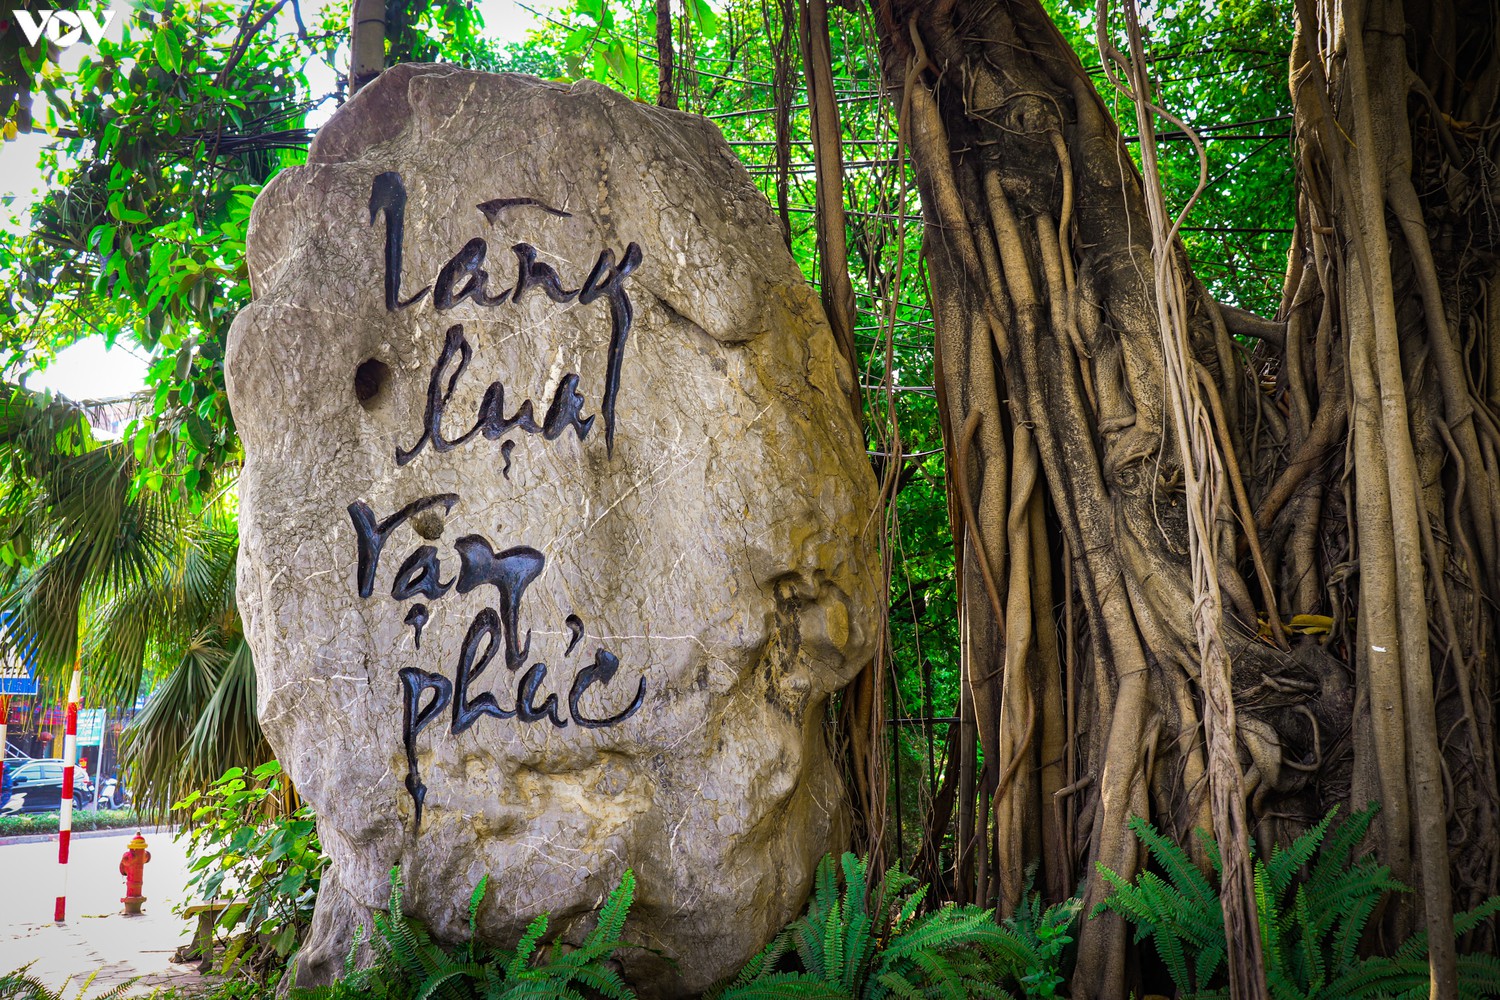 VOV
làng
lụa
vạn
phúc